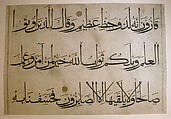 قارون انه لذو حظ عظيم وقال الذين اوتوا
العلم ويلكم ثواب الله خير لمن آمن وعمل
صالحا ولا يلقيها الا الصابرون فخسفنا به